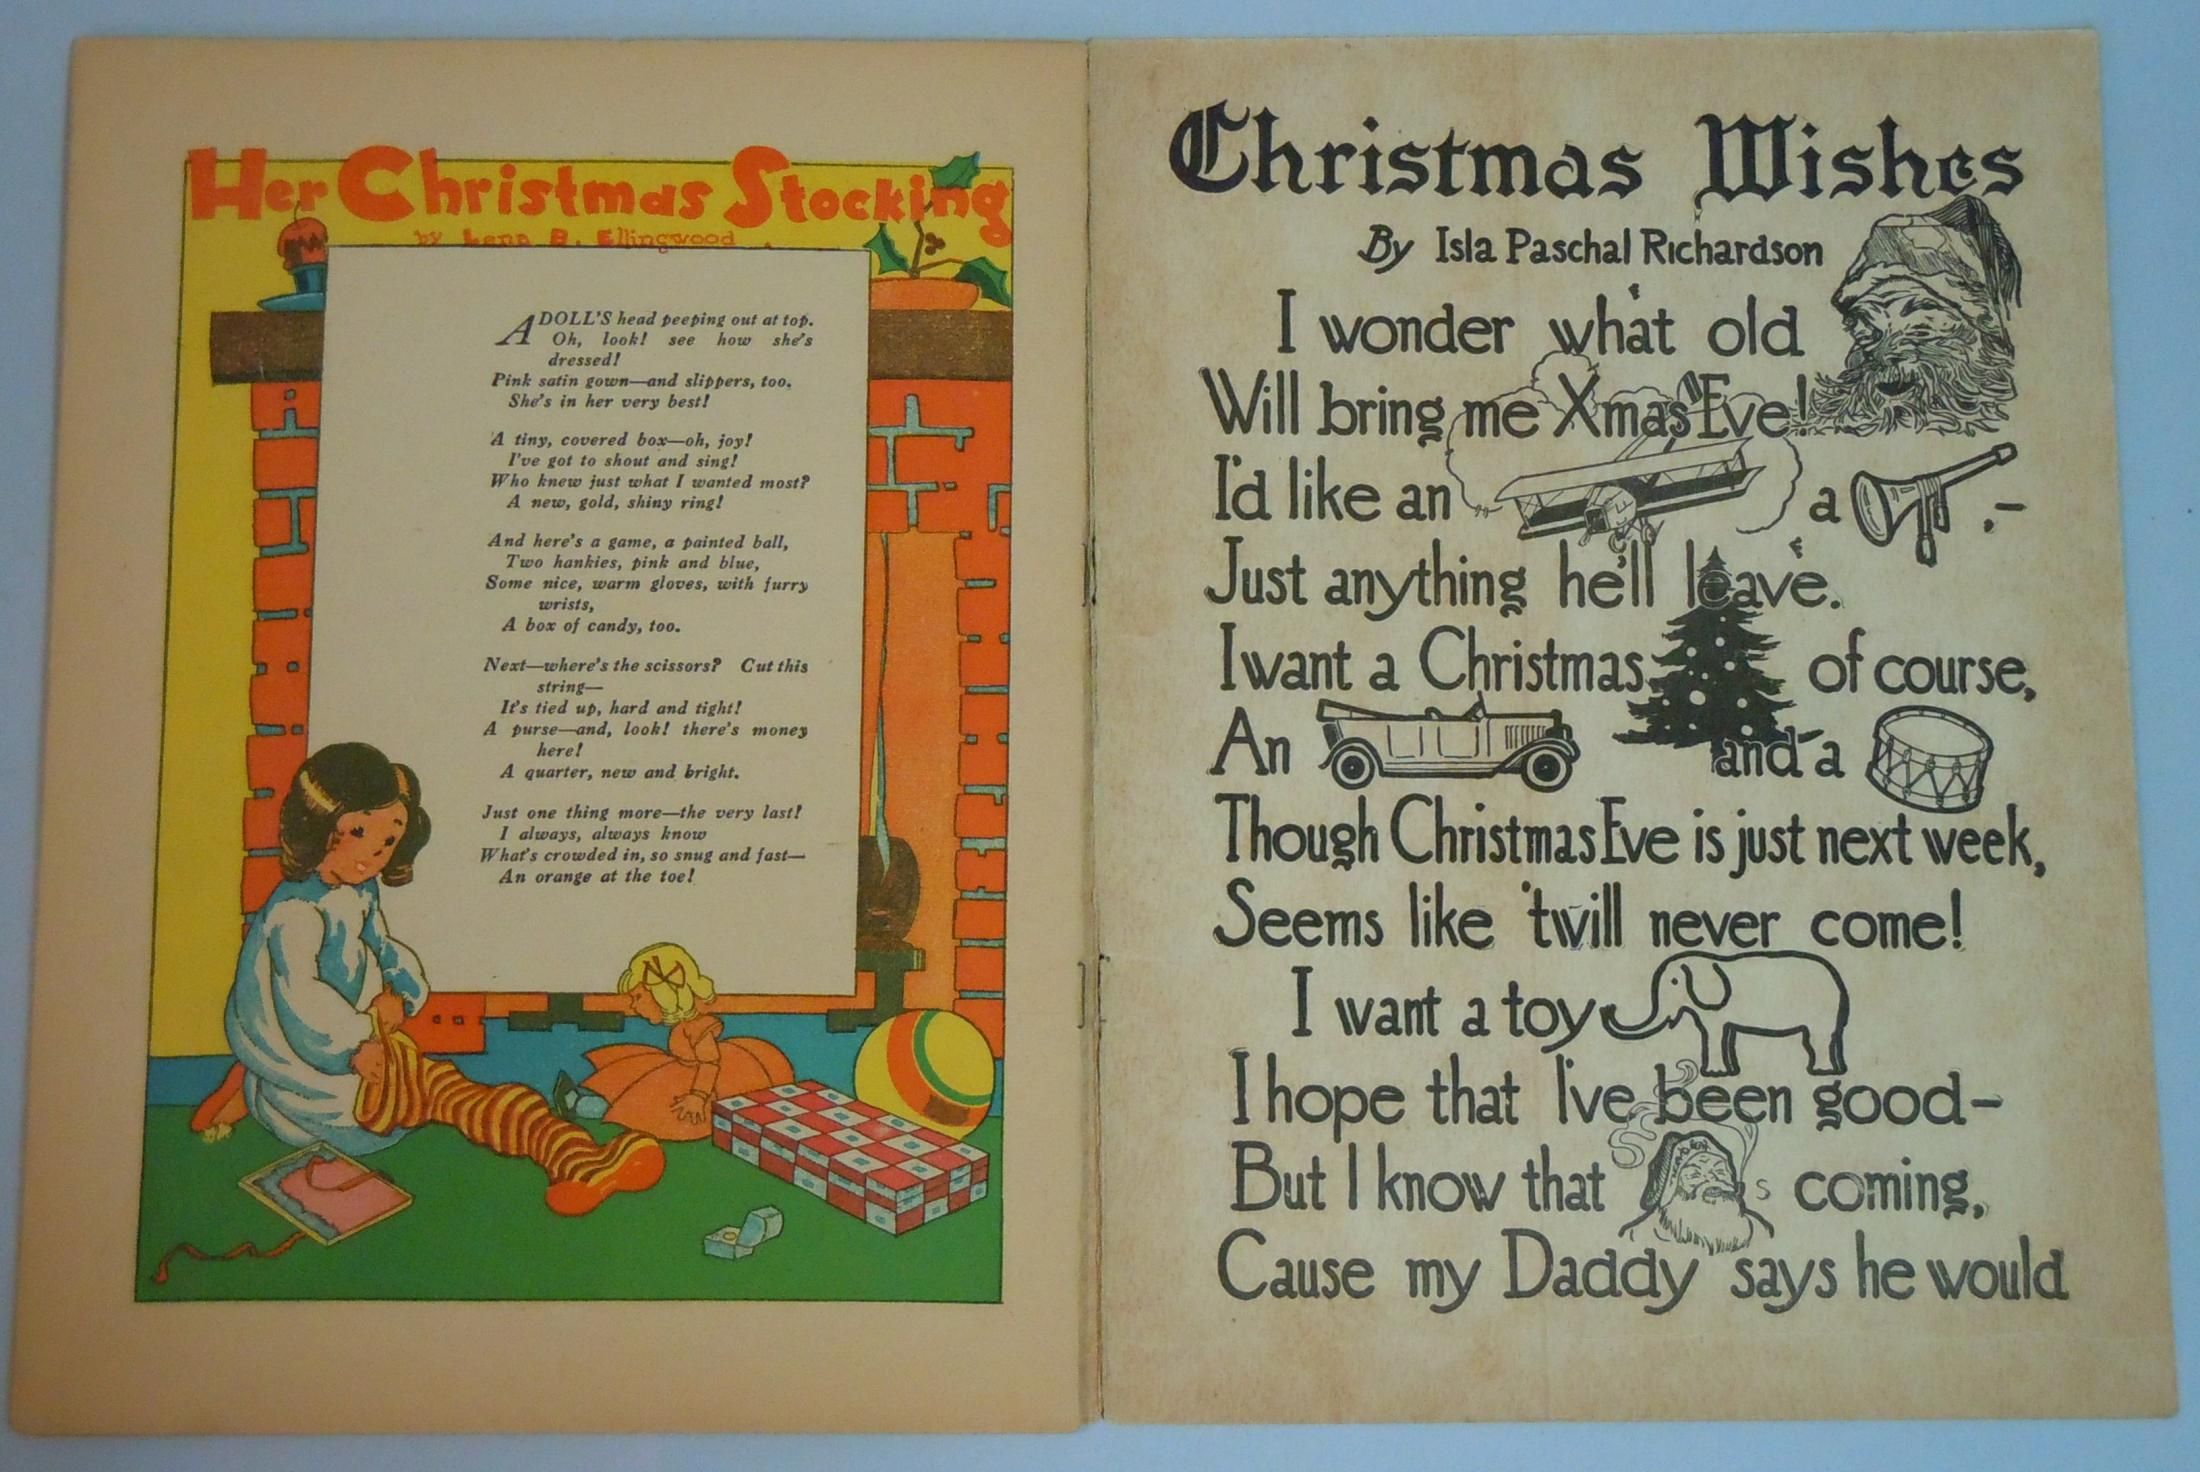 Her Christmas Stocking
by Lena B. Ellingwood
A DOLL'S head peeping out at top.
Oh, look! see how she's
dressed!
Pink satin gown—and slippers, too.
She's in her very best!
A tiny, covered box—oh, joy!
I've got to shout and sing!
Who knew just what I wanted most?
A new, gold, shiny ring!
And here's a game, a painted ball,
Two hankies, pink and blue,
Some nice, warm gloves, with furry
wrists,
A box of candy, too.
Next—where's the scissors? Cut this
string—
It's tied up, hard and tight!
A purse—and, look! there's money
here!
A quarter, new and bright.
Just one thing more—the very last!
I always, always know
What's crowded in, so snug and fast—
An orange at the toe!
Christmas Wishes
By Isla Paschal Richardson
I wonder what old
Will bring me Xmas Eve!
I'd like an a ,-
Just anything he'll leave.
I want a Christmas of course,
An and a
Though Christmas Eve is just next week,
Seems like 'twill never come!
I want a toy
I hope that I've been good-
But I know that s coming,
Cause my Daddy says he would